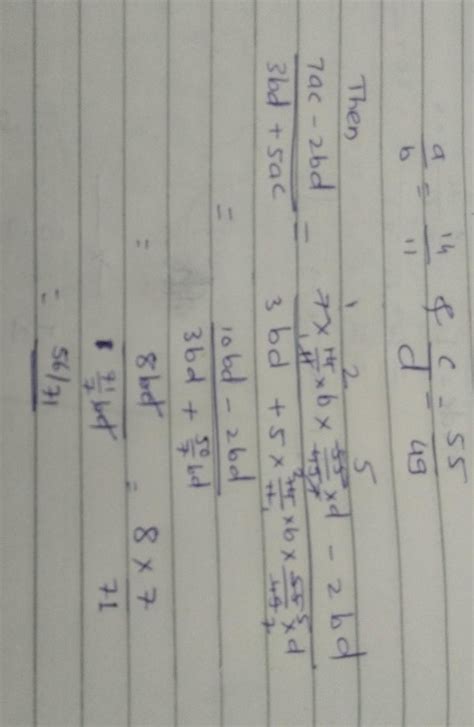 a/b = 14/11 & c/d = 55/49
Then
(7ac - 2bd)/(3bd + 5ac) = (7 x 14/11 x b x 55/49 x d - 2bd)/(3bd + 5 x 14/11 x b x 55/49 x d)
= (10bd - 2bd)/(3bd + 50/7 bd)
= 8bd/(71/7 bd) = (8 x 7)/71
= 56/71